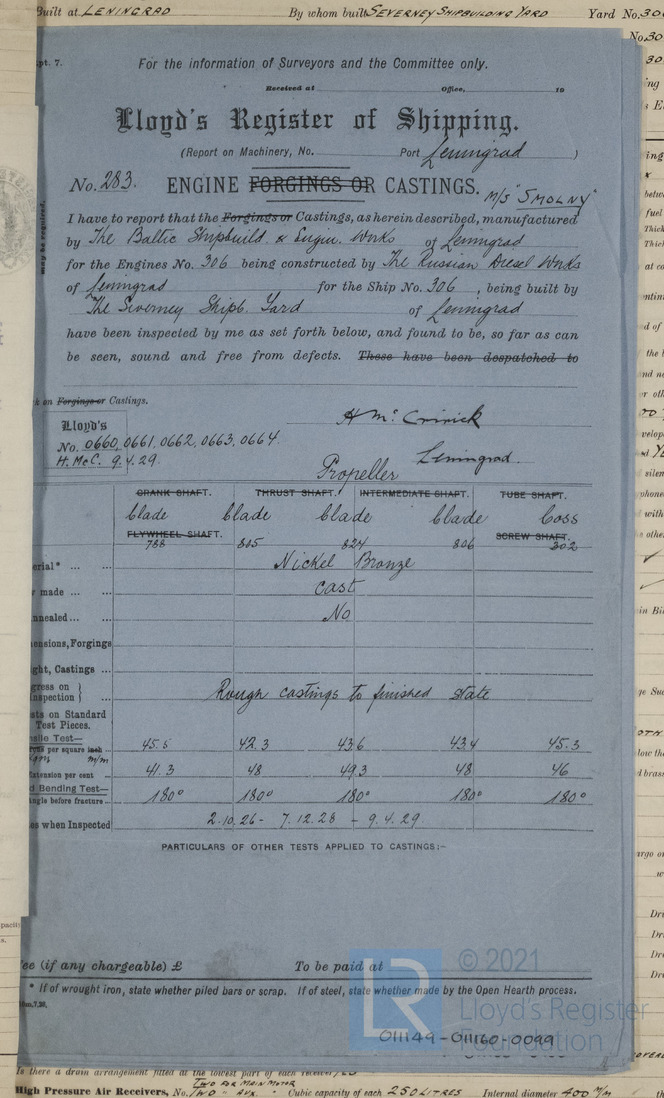 Built at LENINGRAD By whom built SEVERNEY SHIPBUILDING YARD Yard No. 30
No. 30
pt. 7.
For the information of Surveyors and the Committee only.
Received at Office, 19
Lloyd's Register of Shipping.
(Report on Machinery, No. Port Leningrad )
No. 283. ENGINE FORGINGS OR CASTINGS. M/S "SMOLNY"
may be required.
I have to report that the Forgings or Castings, as herein described, manufactured
by The Baltic Shipbuild. & Engin. Works of Leningrad
for the Engines No. 306 being constructed by The Russian Diesel Works
of Leningrad for the Ship No. 306, being built by
The Severney Shipb. Yard of Leningrad
have been inspected by me as set forth below, and found to be, so far as can
be seen, sound and free from defects. These have been despatched to
k on Forgings or Castings.
Lloyd's
No. 0660, 0661, 0662, 0663, 0664.
H. McC. 9.4.29.
Leningrad.
Propeller
CRANK SHAFT. THRUST SHAFT. INTERMEDIATE SHAFT. TUBE SHAFT.
blade blade blade blade boss
FLYWHEEL SHAFT. SCREW SHAFT.
788 805 824 806 302
erial* ... ... Nickel Bronze
r made ... ... cast
nnealed ... ... No
ensions, Forgings
ght, Castings ...
gress on }
nspection } ... Rough castings to finished state
sts on Standard
Test Pieces.
nsile Test—
per square inch ... 45.5 42.3 43.6 43.4 45.3
m/m
Extension per cent 41.3 48 49.3 48 46
d Bending Test—
ngle before fracture ... 180° 180° 180° 180° 180°
es when Inspected 2.10.26 - 7.12.28 - 9.4.29.
PARTICULARS OF OTHER TESTS APPLIED TO CASTINGS:-
ee (if any chargeable) £ To be paid at
* If of wrought iron, state whether piled bars or scrap. If of steel, state whether made by the Open Hearth process.
© 2021
LR Lloyd's Register
Foundation
011149-011160-0099
Is there a drain arrangement fitted at the lowest part of each receiver YES
TWO FOR MAIN MOTOR
High Pressure Air Receivers, No. TWO - AUX. " Cubic capacity of each 250 LITRES Internal diameter 400 m/m